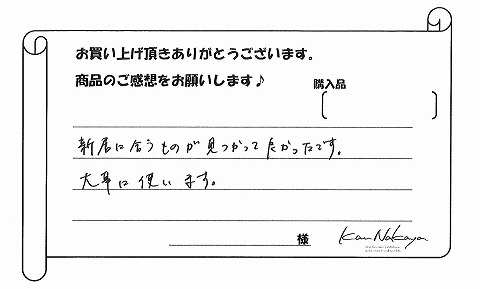 お買い上げ頂きありがとうございます。
商品のご感想をお願いします♪
購入品
新居に合うものが見つかって良かったです。
大事に使います。
様
Kan Nakaya